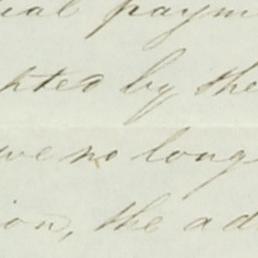 ual paym
hted by the
we no long
ion, the ad